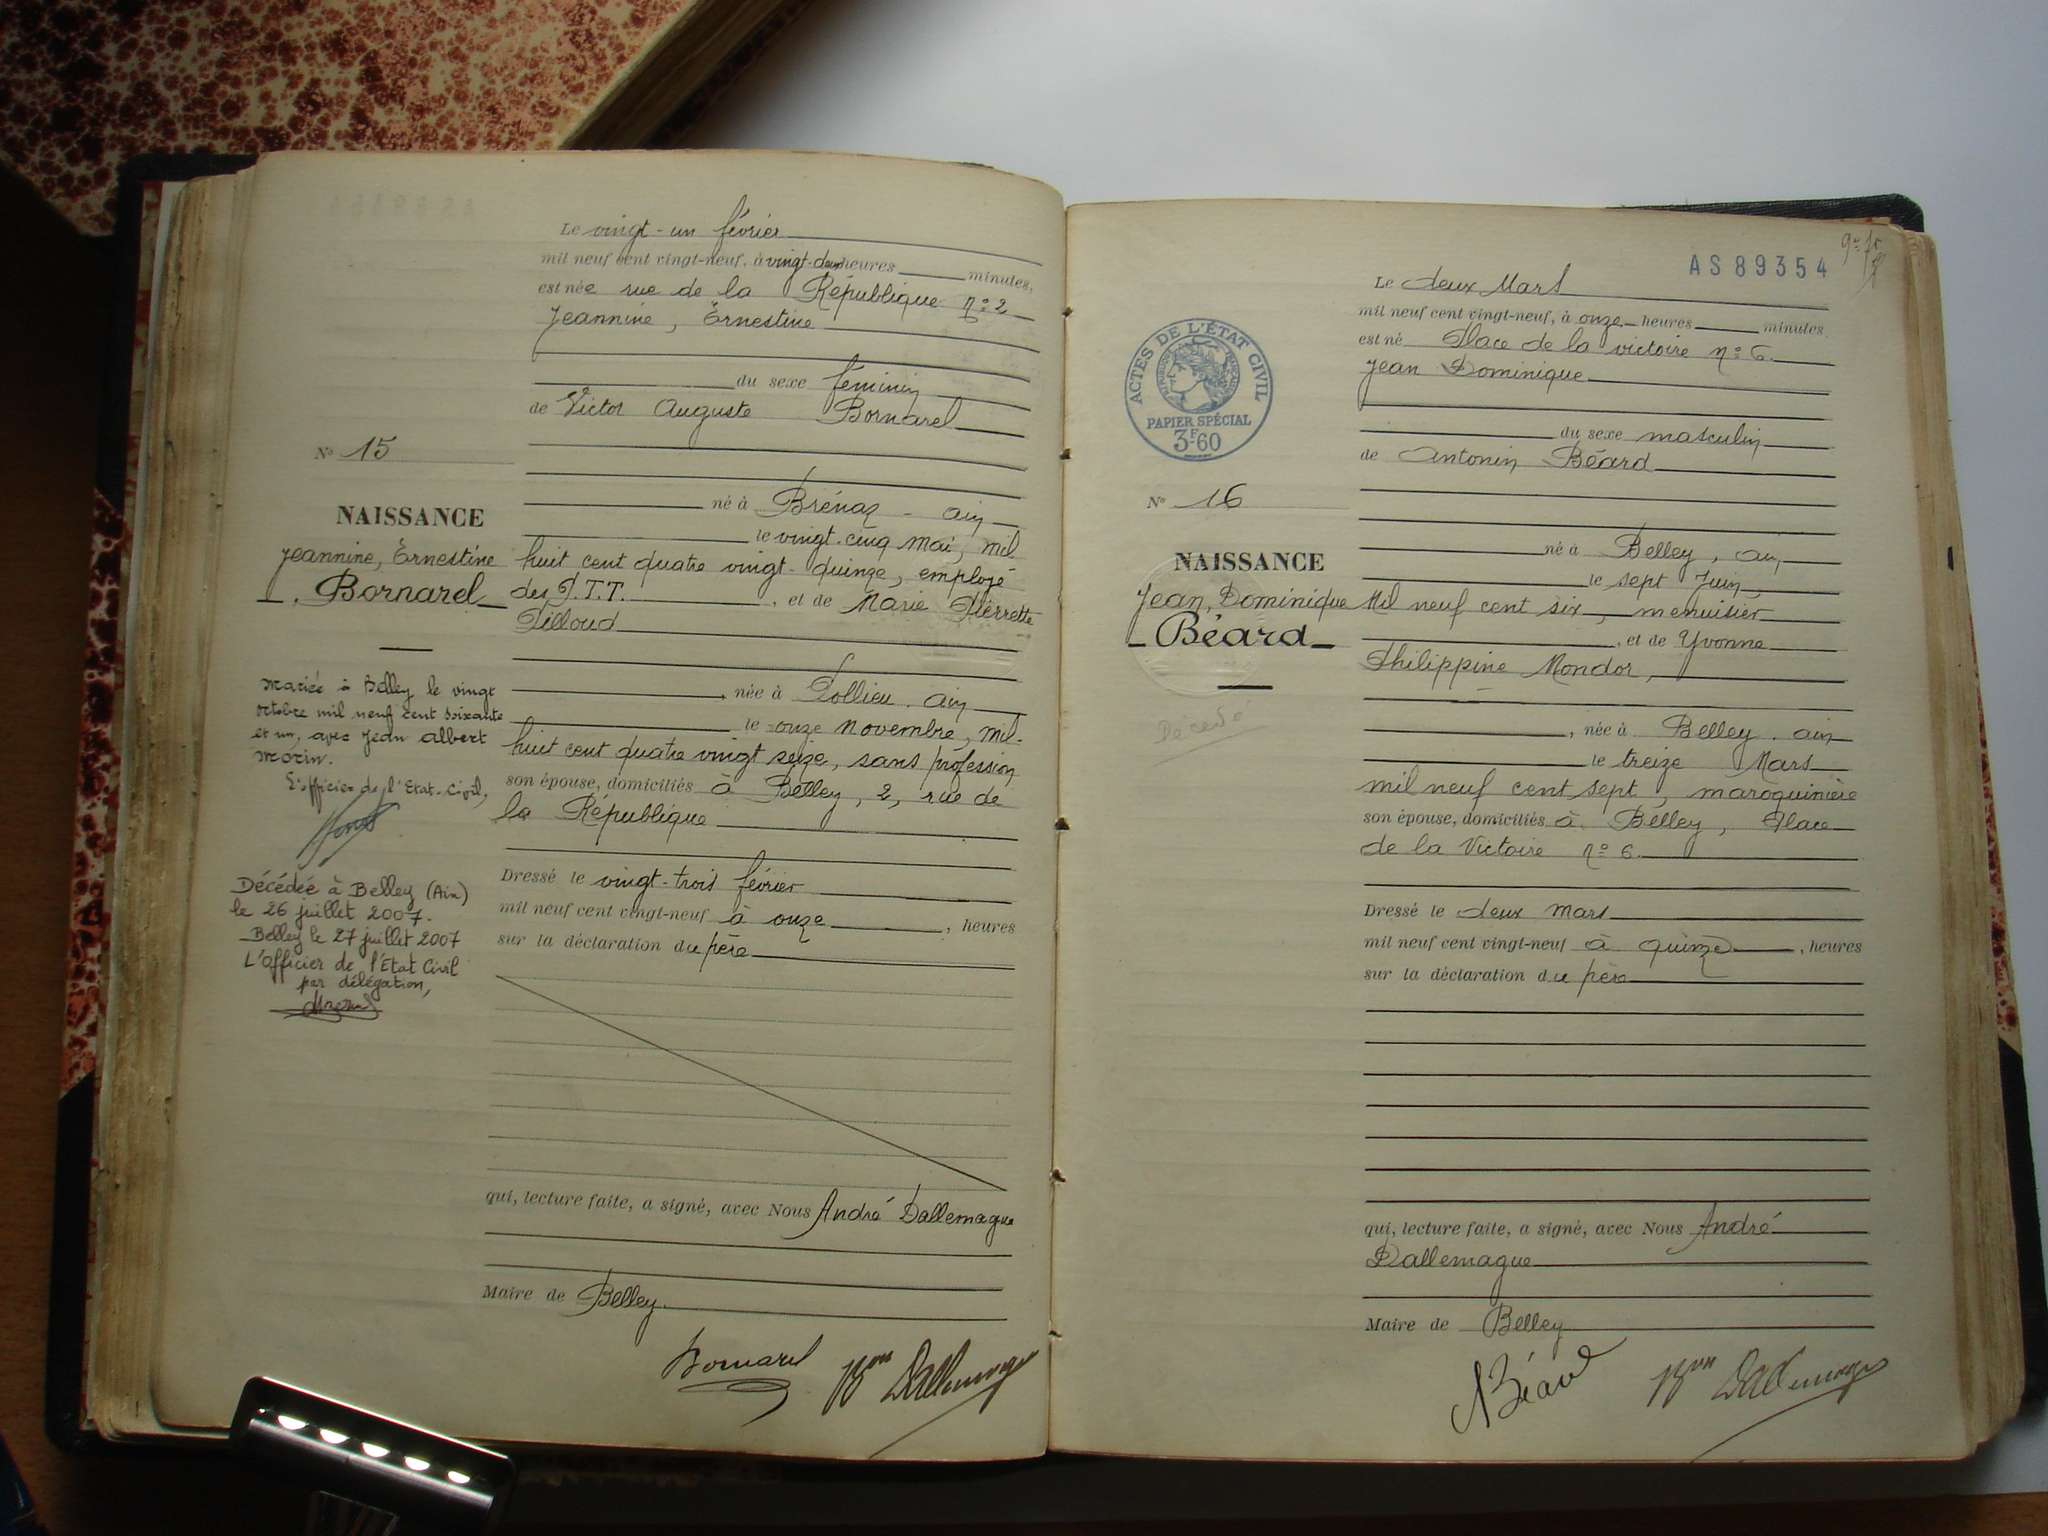 Le vingt-un février
mil neuf cent vingt-neuf, à vingt-deux heures minutes,
est née rue de la République n° 2
Jeannine, Ernestine
du sexe féminin
de Victor Auguste Bornarel
N° 15
né à Brénaz - ain
NAISSANCE
le vingt-cinq Mai, mil
Jeannine, Ernestine
huit cent quatre vingt-quinze, employé
Bornarel
des P.T.T., et de Marie Pierrette
Pilloud
née à Pollieu. ain
le onze Novembre, mil-
huit cent quatre vingt seize, sans profession
son épouse, domiciliés à Belley, 2, rue de
la République
Dressé le vingt-trois février
mil neuf cent vingt-neuf à onze, heures
sur la déclaration du père
mariée à Belley le vingt
octobre mil neuf cent soixante
et un, avec Jean albert
morin.
L'officier de l'Etat-Civil,
Décédée à Belley (Ain)
le 26 juillet 2007.
Belley le 27 juillet 2007
L'officier de l'Etat Civil
par délégation,
qui, lecture faite, a signé, avec Nous André Dallemagne
Maire de Belley.
Bornarel Bon Dallemagne
AS 89354
Le deux Mars
mil neuf cent vingt-neuf, à onze heures minutes
est né Place de la victoire n° 6.
Jean Dominique
ACTES DE L'ÉTAT CIVIL
PAPIER SPÉCIAL
3F60
du sexe masculin
de Antonin Béard
N° 16
né à Belley, ain
NAISSANCE
le sept Juin,
Jean, Dominique
Mil neuf cent six, menuisier
Béard
, et de Yvonne
Philippine Mondor,
Décédé
, née à Belley. ain
le treize Mars
mil neuf cent sept, maroquinière
son épouse, domiciliés à Belley, Place
de la Victoire n° 6.
Dressé le deux Mars
mil neuf cent vingt-neuf à quinze, heures
sur la déclaration du père
qui, lecture faite, a signé, avec Nous André
Dallemagne
Maire de Belley
A Béard Bon Dallemagne